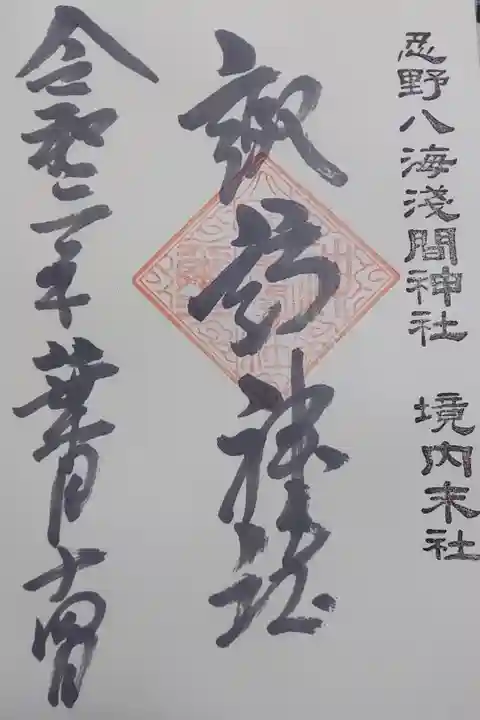 忍野八海淺間神社 境内末社
諏訪神社
令和二年葉月